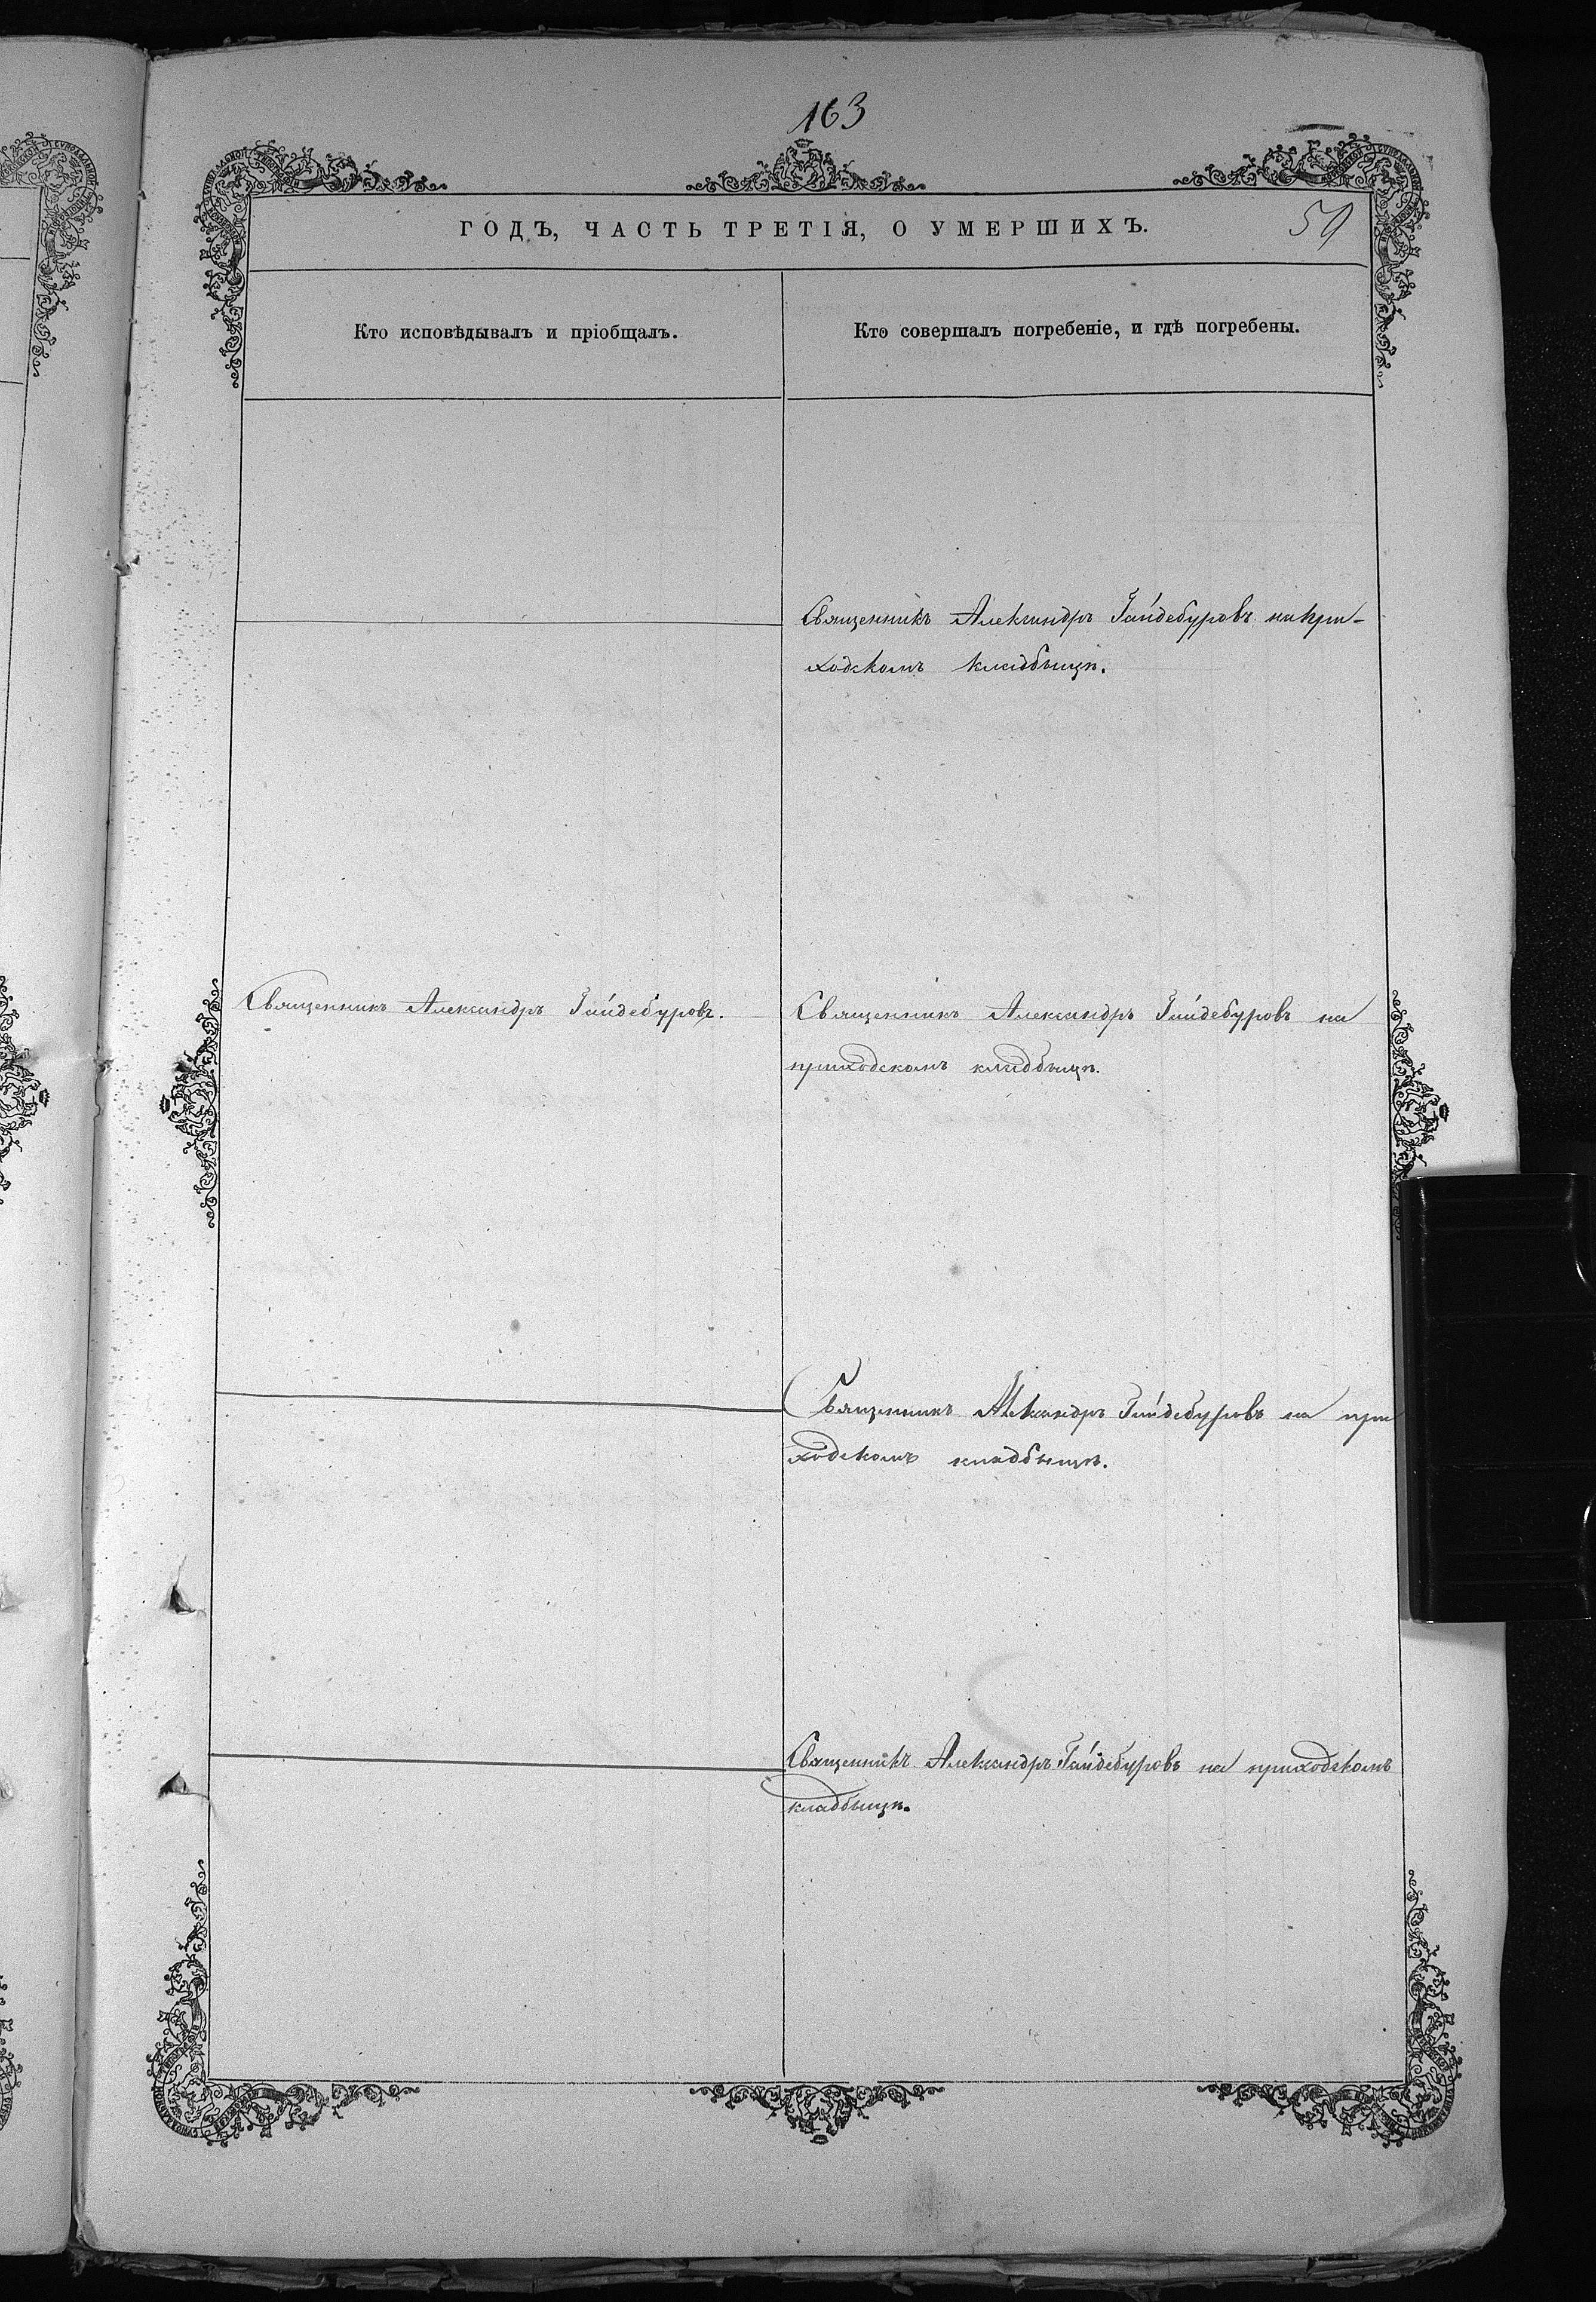 163
ГОДЪ, ЧАСТЬ ТРЕТІЯ, О УМЕРШИХЪ.
59
Кто исповѣдывалъ и пріобщалъ.
Кто совершалъ погребеніе, и гдѣ погребены.
Священникъ Александръ Гайдебуровъ на при-
ходскомъ кладбищѣ.
Священникъ Александръ Гайдебуровъ.
Священникъ Александръ Гайдебуровъ на
приходскомъ кладбищѣ.
Священникъ Александръ Гайдебуровъ на при
ходскомъ кладбищѣ.
Священникъ Александръ Гайдебуровъ на приходскомъ
кладбищѣ.